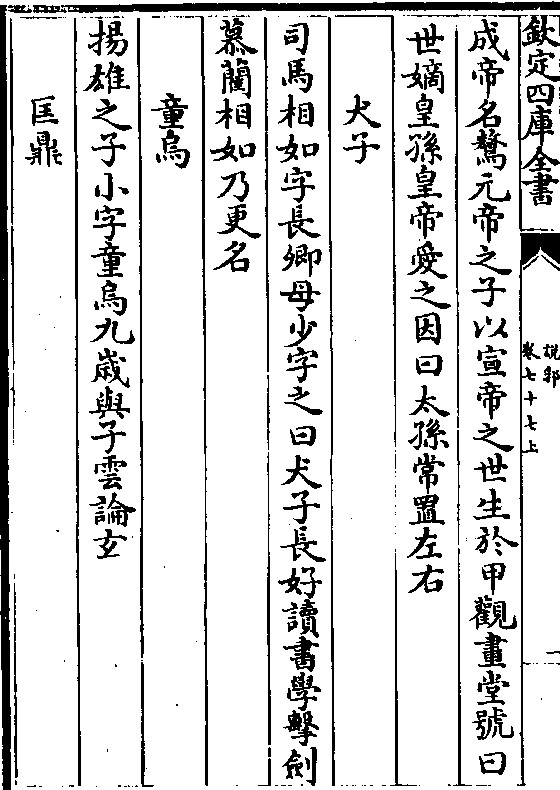 欽定四庫全書
說郛
卷七十七上
一
成帝名驁元帝之子以宣帝之世生於甲觀畫堂號曰
世嫡皇孫皇帝愛之因曰太孫常置左右
犬子
司馬相如字長卿母少字之曰犬子長好讀書學擊劍
慕藺相如乃更名
童烏
揚雄之子小字童烏九歲與子雲論玄
匡鼎